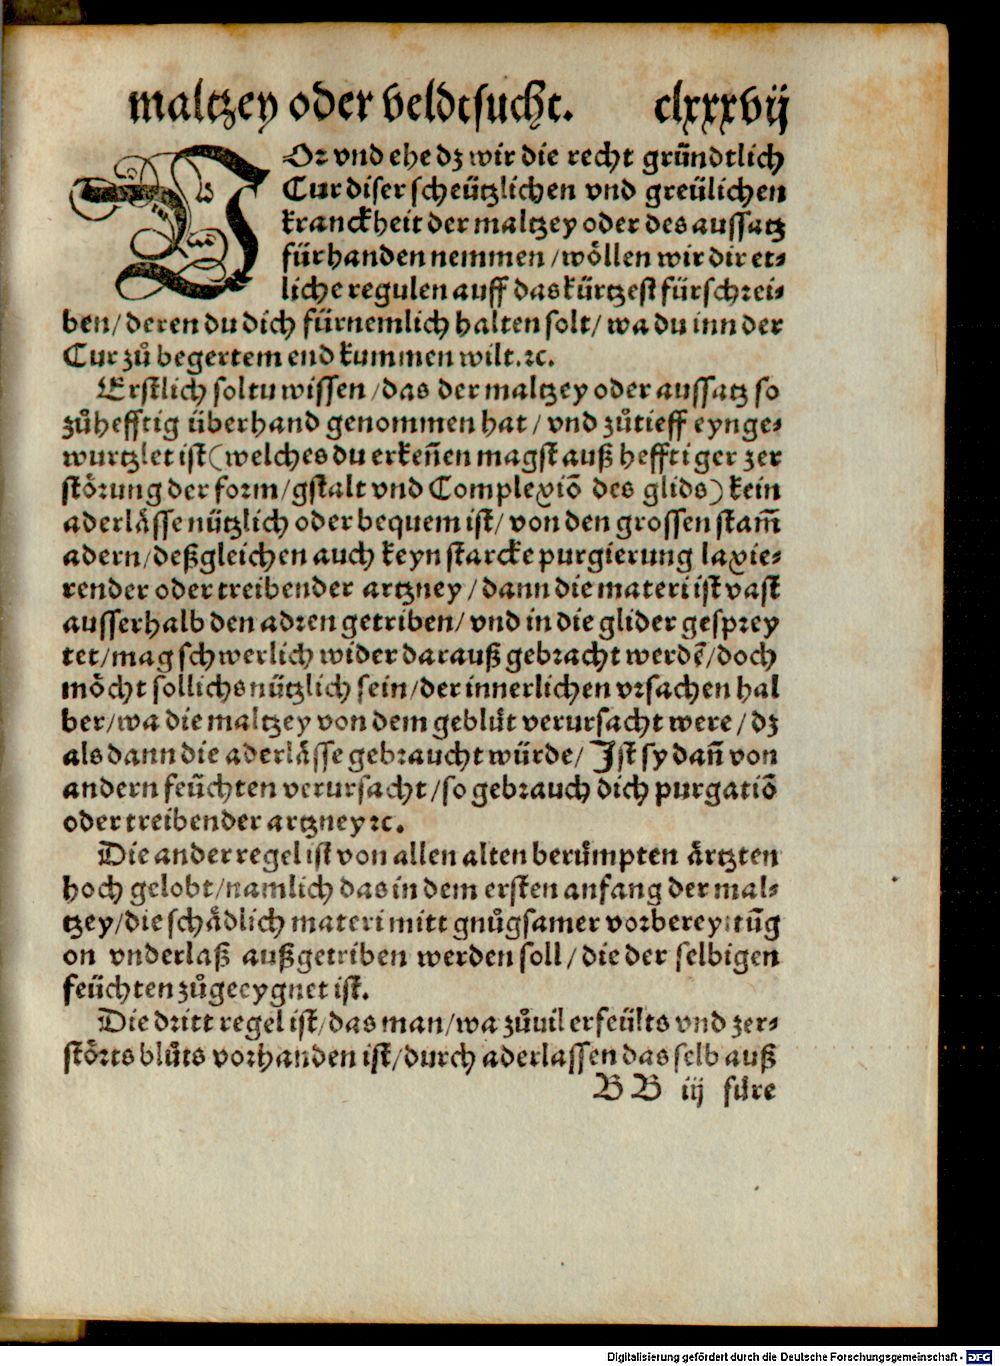 maltzey oder veldtsucht. clxxxvij
VOr vnd ehe dz wir die recht gründtlich
Cur diser scheützlichen vnd greülichen
kranckheit der maltzey oder des aussatz
fürhanden nemmen / wöllen wir dir et⸗
liche regulen auff das kürtzest fürschrei⸗
ben / deren du dich fürnemlich halten solt / wa du inn der
Cur zů begertem end kummen wilt. ꝛc.
Erstlich soltu wissen / das der maltzey oder aussatz so
zůhefftig überhand genommen hat / vnd zůtieff eynge⸗
wurtzlet ist (welches du erkeñen magst auß hefftiger zer
störung der form / gstalt vnd Complexiõ des glids) kein
aderlässe nützlich oder bequem ist / von den grossen stam̃
adern / deßgleichen auch keyn starcke purgierung laxie⸗
render oder treibender artzney / dann die materi ist vast
ausserhalb den adren getriben / vnd in die glider gesprey
tet / mag schwerlich wider darauß gebracht werdẽ / doch
möcht sollichs nützlich sein / der innerlichen vrsachen hal
ber / wa die maltzey von dem geblůt verursacht were / dz
als dann die aderlässe gebraucht würde / Ist sy dañ von
andern feüchten verursacht / so gebrauch dich purgatiõ
oder treibender artzney ꝛc.
Die ander regel ist von allen alten berůmpten ärtzten
hoch gelobt / namlich das in dem ersten anfang der mal⸗
tzey / die schädlich materi mitt gnůgsamer vorbereytũg
on vnderlaß außgetriben werden soll / die der selbigen
feüchten zůgeeygnet ist.
Die dritt regel ist / das man / wa zůuil erfeülts vnd zer⸗
störts blůts vorhanden ist / durch aderlassen das selb auß
BB iij füre
Digitalisierung gefördert durch die Deutsche Forschungsgemeinschaft - DFG